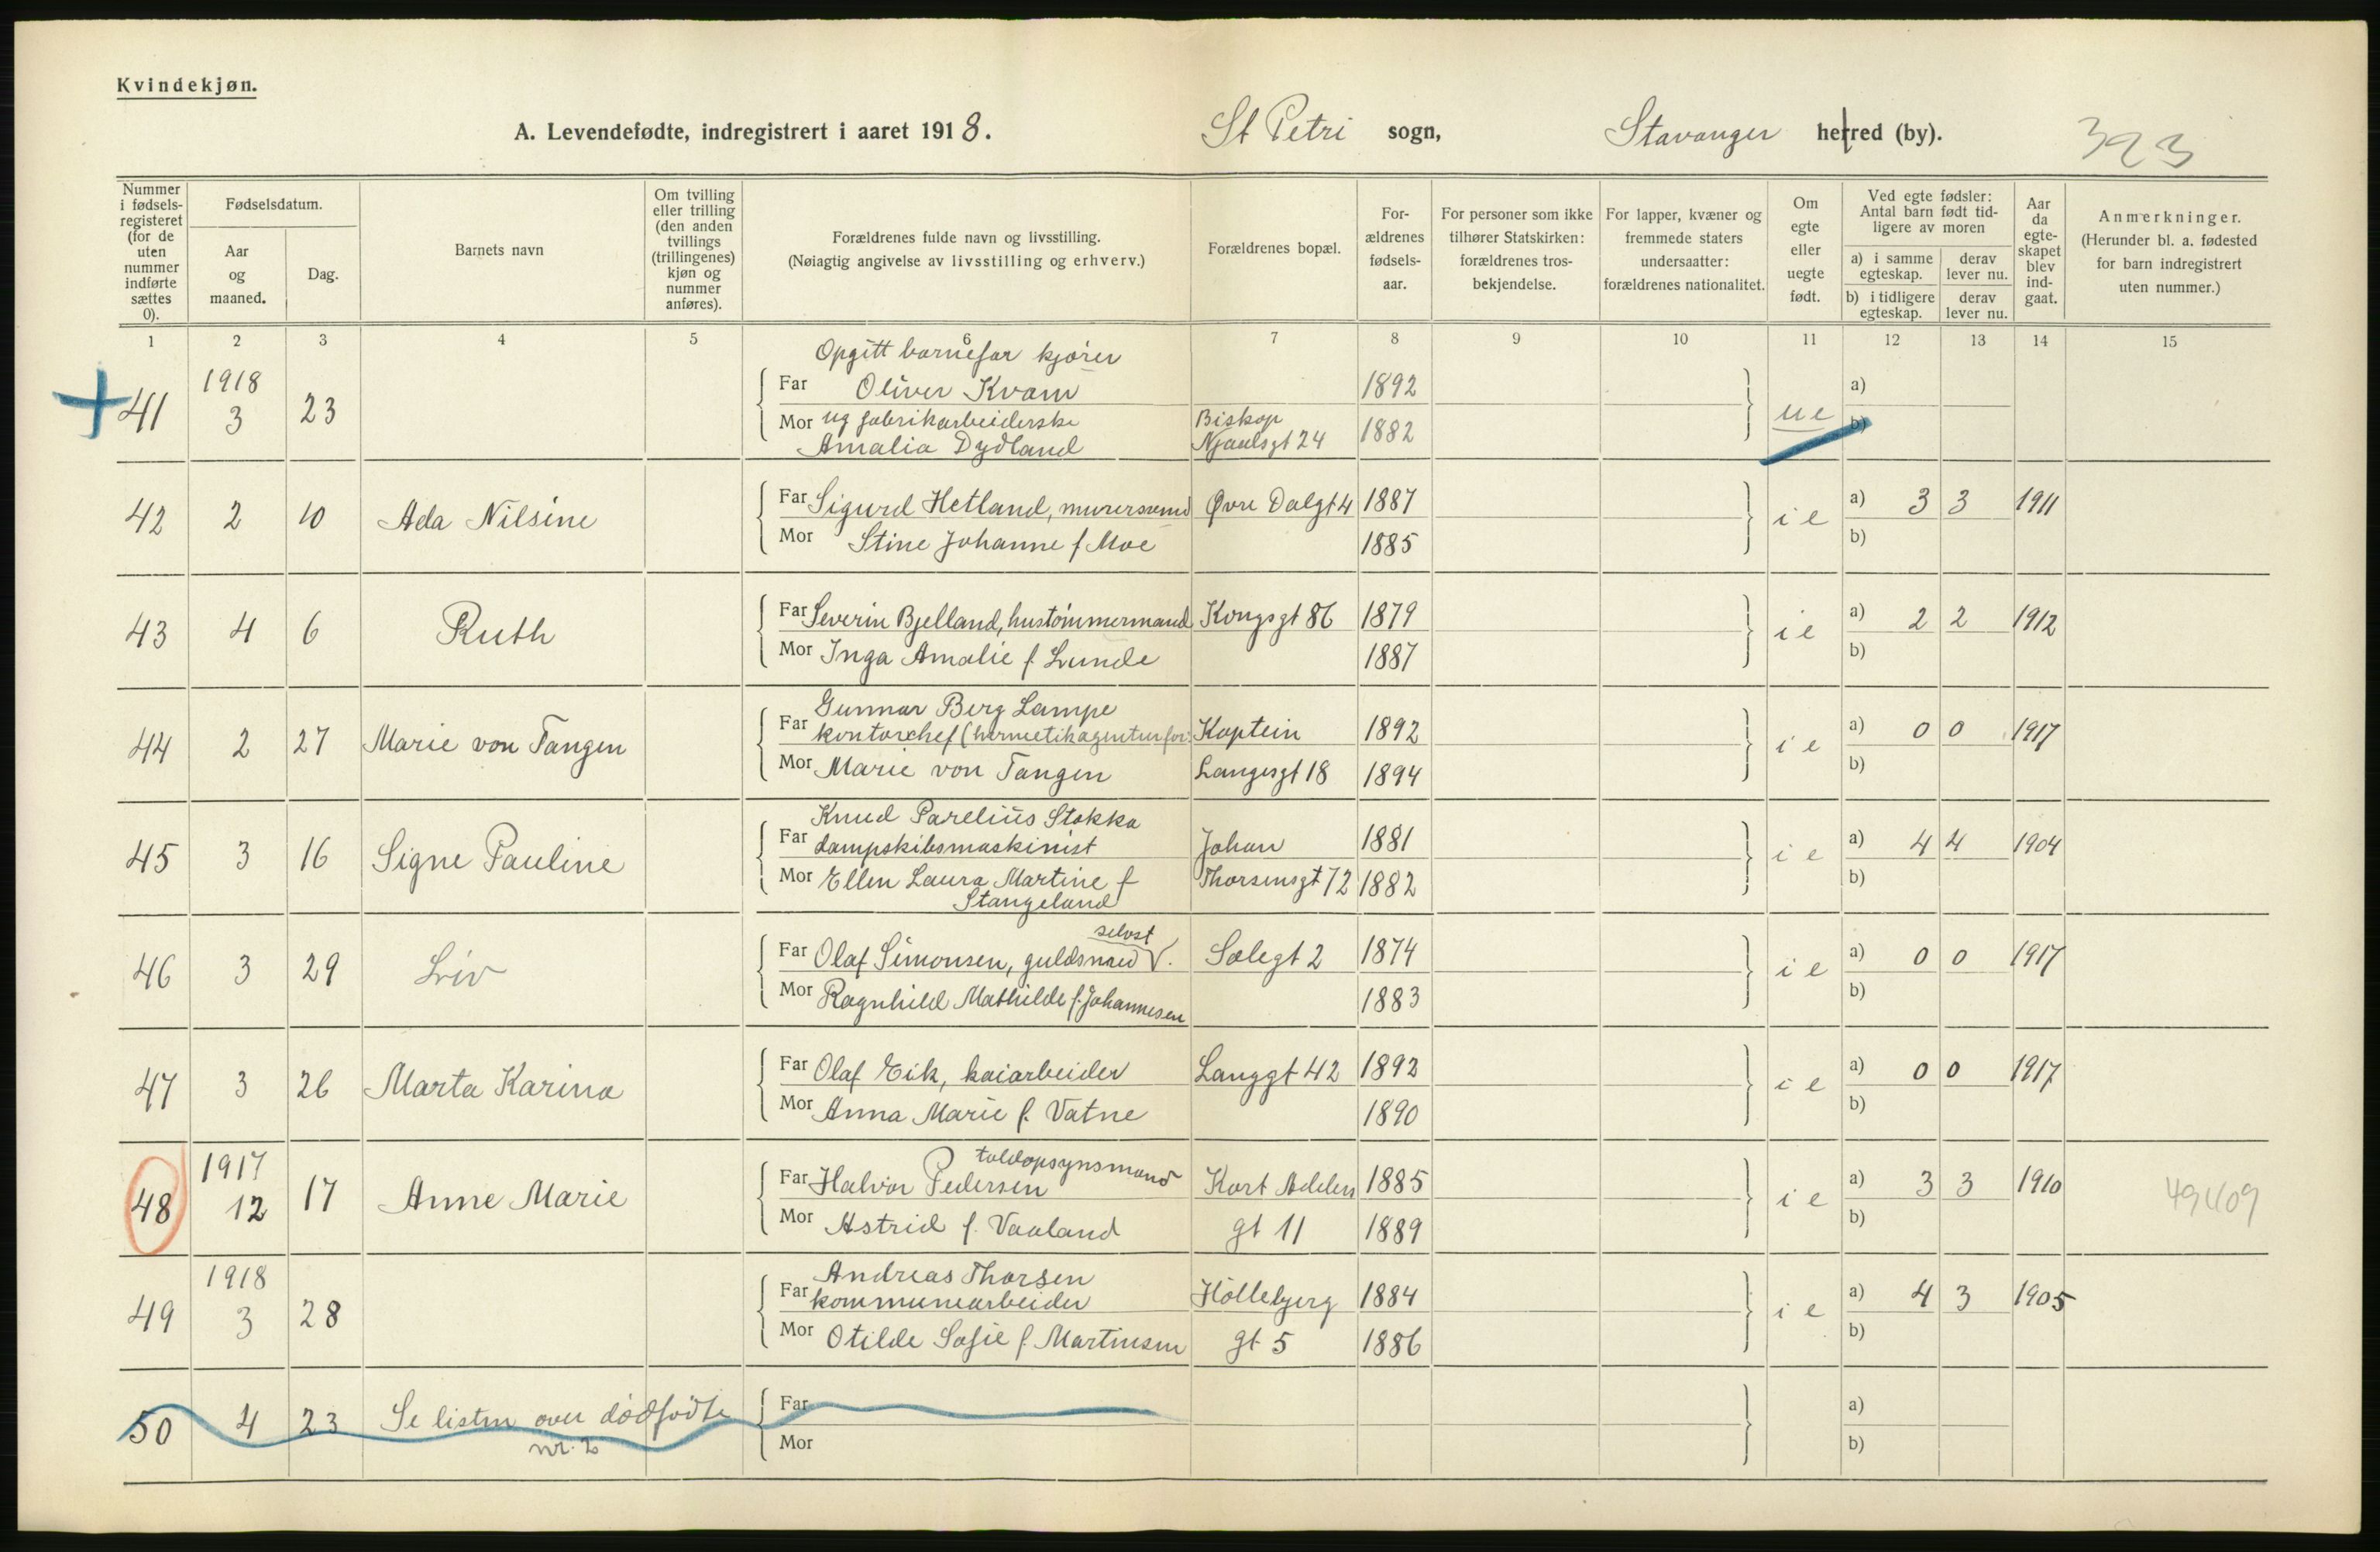 Kvindekjøn.
A. Levendefødte, indregistrert i aaret 1918. St Petri sogn, Stavanger herred (by). 323
Nummer i fødsels-registeret (for de uten nummer indførte sættes 0).
Fødselsdatum.
Aar og maaned.
Dag.
Barnets navn
Om tvilling eller trilling (den anden tvillings (trillingenes) kjøn og nummer anføres).
Forældrenes fulde navn og livsstilling.
(Nøiagtig angivelse av livsstilling og erhverv.)
Forældrenes bopæl.
For-ældrenes fødsels-aar.
For personer som ikke tilhører Statskirken: forældrenes tros-bekjendelse.
For lapper, kvæner og fremmede staters undersaatter: forældrenes nationalitet.
Om egte eller uegte født.
Ved egte fødsler: Antal barn født tid-ligere av moren
a) i samme egteskap. derav lever nu.
b) i tidligere egteskap. derav lever nu.
Aar da egte-skapet blev ind-gaat.
Anmerkninger.
(Herunder bl. a. fødested for barn indregistrert uten nummer.)
1 2 3 4 5 6 7 8 9 10 11 12 13 14 15
Opgitt barnefar kjører
41 1918 3 23 Far Oliver Kvam 1892 ue a)
Mor ug fabrikarbeiderske Amalia Dydland Biskop Njaulsgt 24 1882 b)
42 2 10 Ada Nilsine Far Sigurd Hetland, murersvend Øvre Dalgt 4 1887 i e a) 3 3 1911
Mor Stine Johanne f Moe 1885 b)
43 4 6 Ruth Far Severin Bjelland, hustømmermand Kongsgt 86 1879 i e a) 2 2 1912
Mor Inga Amalie f. Lunde 1887 b)
Gunnar Berg Lampe
44 2 27 Marie von Tangen Far kontorchef (hermetikagenturfor. Kaptein 1892 i e a) 0 0 1917
Mor Marie von Tangen Langesgt 18 1894 b)
Knud Parelius Stokka
45 3 16 Signe Pauline Far dampskibsmaskinist Johan 1881 i e a) 4 4 1904
Mor Ellen Laura Martine f Stangeland Thorsensgt 72 1882 b)
46 3 29 Liv Far Olaf Simonsen, guldsmed selvst V. Solegt 2 1874 i e a) 0 0 1917
Mor Ragnhild Mathilde f. Johannesen 1883 b)
47 3 26 Marta Karina Far Olaf Eik, kaiarbeider Langgt 42 1892 i e a) 0 0 1917
Mor Anna Marie f. Vatne 1890 b)
48 1917 12 17 Anne Marie Far Halvor Pedersen toldopsynsmand Kort Adelers 1885 i e a) 3 3 1910 49409
Mor Astrid f. Vaaland gt 11 1889 b)
Andreas Thorsen
49 1918 3 28 Far kommunearbeider Høllebjerg 1884 i e a) 4 3 1905
Mor Otilde Sofie f. Martinsen gt 5 1886 b)
50 4 23 Se listen over dødfødte nr. 2 Far a)
Mor b)